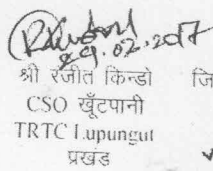 29.02.2017
श्री रंजीत किन्डो जि
CSO खूँटपानी
TRTC Lupungut
प्रखंड